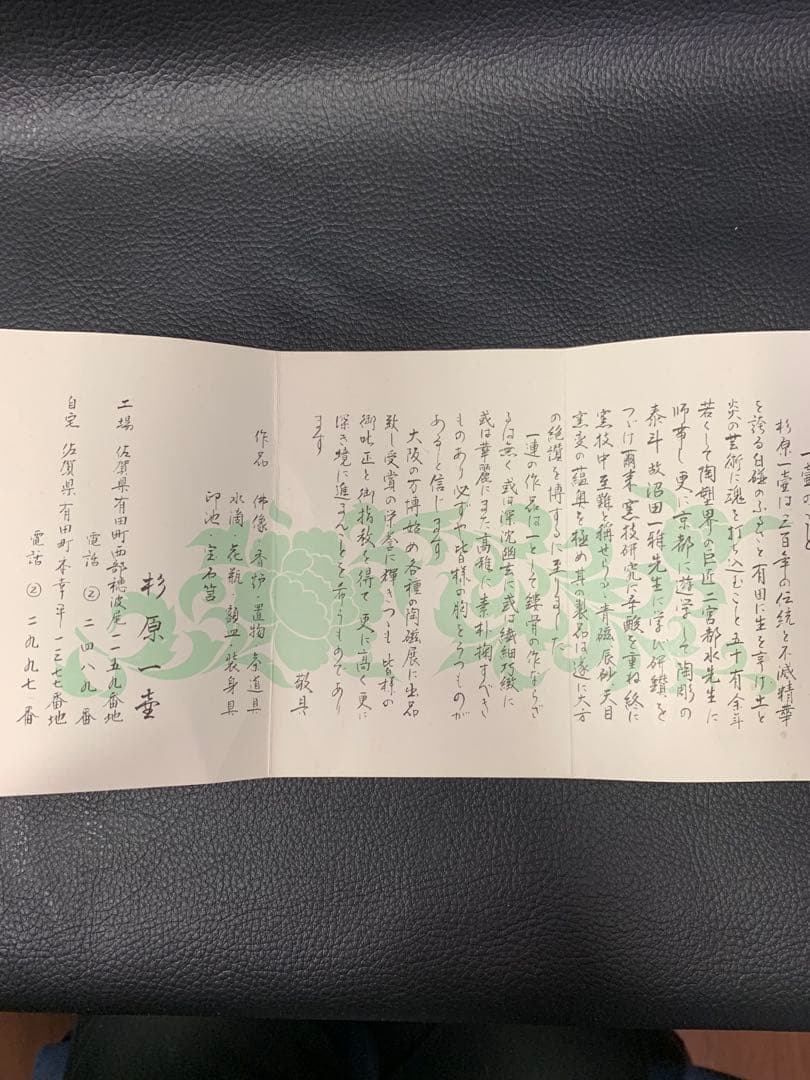 一壷のこと
杉原一壷は三百年の伝統と不滅精華
を誇る白磁のふるさと有田に生を享け土と
炎の芸術に魂を打ち込むこと五十有余年
若くして陶塑界の巨匠二宮都水先生に
師事し更に京都に遊学して陶彫の
泰斗故沼田一雅先生に学び研鑽を
つゞけ爾来窯技研究に辛酸を重ね終に
窯技中至難と称せらるゝ青磁辰砂天目
窯変の蘊奥を極め其の製品は遂に大方
の絶讃を博するに至りました
一連の作品は一として鏤骨の作ならざ
るは無く或は深沈幽玄に或は繊細巧緻に
或は華麗にまた高雅に素朴掬すべき
ものあり必ずや皆様の胸をうつものが
あると信じます
大阪の万博始め各種の陶磁展に出品
致し受賞の栄誉に輝きつゝも皆様の
御叱正と御指教を得て更に高く更に
深き境に進まんことを希うものであり
ます
敬具
作品 佛像・香炉・置物・茶道具
水滴・花瓶・額皿・装身具
印池・宝石筥
杉原一壷
工場 佐賀県有田町西部穂波尾二一五九番地
電話 ② 二四八九番
自宅 佐賀県有田町本幸平一三七七番地
電話 ② 二九九七番